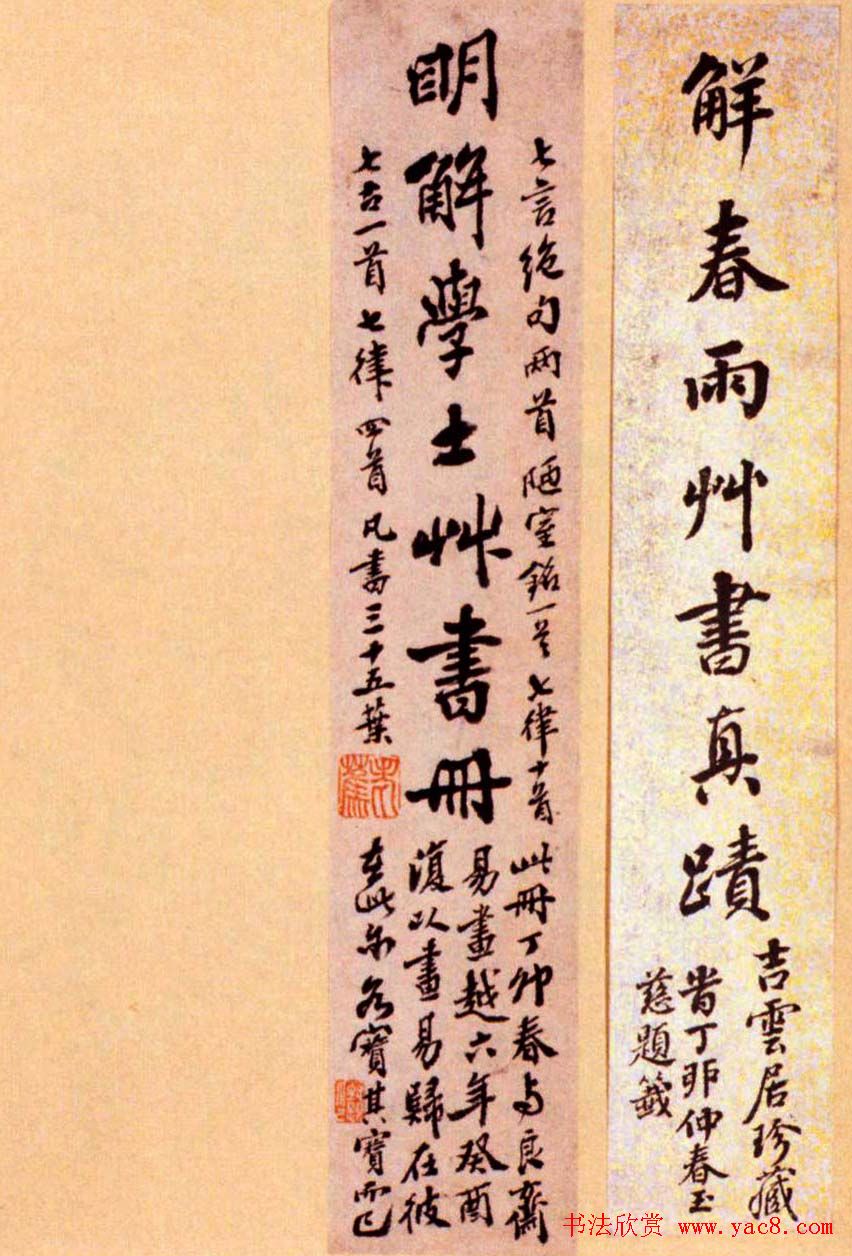 解春雨艸書真蹟
吉雲居珍藏
昔丁卯仲春玉
慈題籤
七言絶句兩首陋室銘一首七律十首
明解學士艸書冊
七古一首七律四首凡書三十五葉
此冊丁卯春与良齋
易畫越六年癸酉
復以畫易歸在彼
在此亦各寶其寶而已
书法欣赏 www.yac8.com